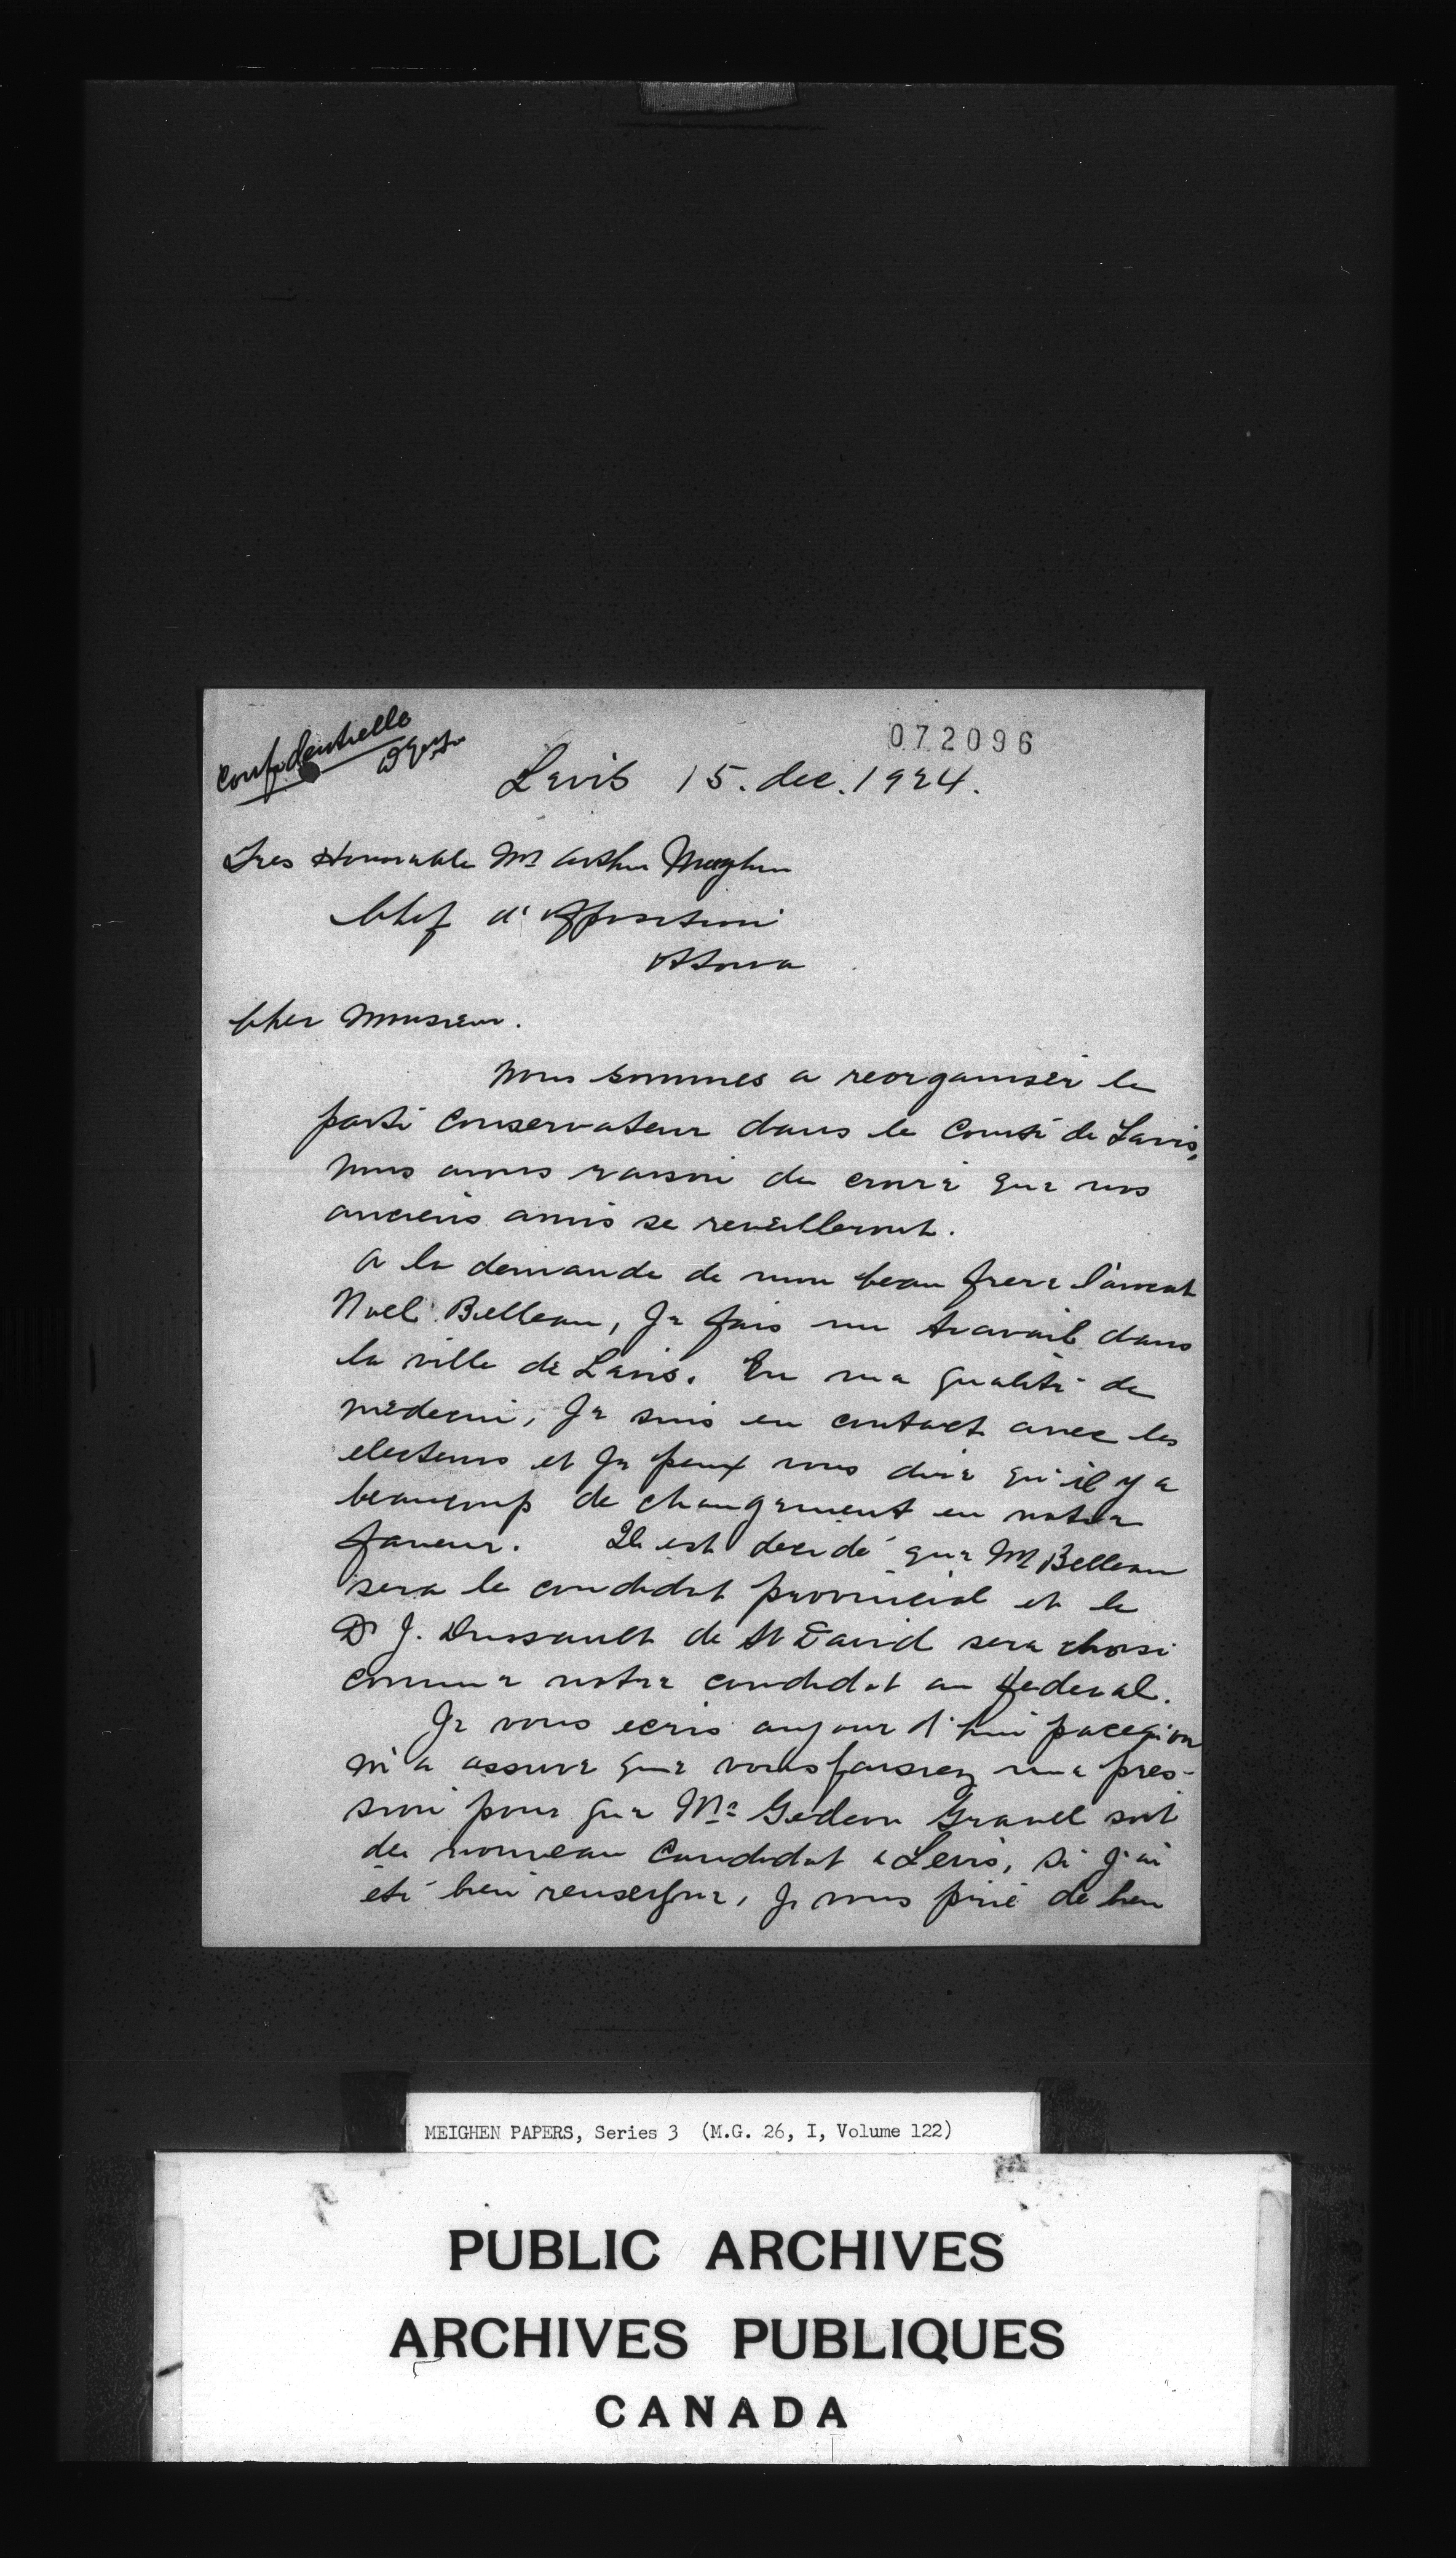 Confidentielle
072096
Levis 15. dec. 1924.
Tres Honorable Mr Arthur Meighen
Chef d'Opposition
Ottawa
Cher Monsieur.
Nous sommes a reorganiser le
parti Conservateur dans le Comté de Levis,
nous avons raison de croire que nos
anciens amis se reveilleront.
A la demande de mon beau frere l'avocat
Noel Belleau, Je fais un travail dans
la ville de Levis. En ma qualité de
médecin, Je suis en contact avec les
electeurs et Je peux vous dire qu'il y a
beaucoup de changement en notre
faveur. Il est decidé que M Belleau
sera le candidat provincial et le
Dr J. Dussault de St David sera choisi
comme notre candidat au federal.
Je vous ecris aujourd'hui parcequ'on
m'a assuré que vous faisiez une pres-
sion pour que Mr Gedeon Gravel soit
de nouveau candidat a Levis, si j'ai
été bien renseigné, Je vous prie de bien
MEIGHEN PAPERS, Series 3 (M.G. 26, I, Volume 122)
PUBLIC ARCHIVES
ARCHIVES PUBLIQUES
CANADA